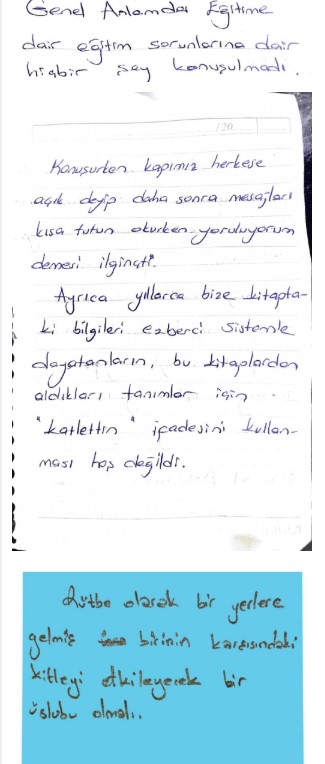 Genel Anlamda Eğitime
dair eğitim sorunlarına dair
hiçbir şey konuşulmadı.
120
Konuşurken kapımız herkese
açık deyip daha sonra mesajları
kısa tutun okurken yoruluyorum
demesi ilginçti.
Ayrıca yıllarca bize kitapta-
ki bilgileri ezberci sistemle
dayatanların, bu kitaplardan
aldıkları tanımlar için
"katlettin" ifadesini kullan-
ması hoş değildi.
Rütbe olarak bir yerlere
gelmiş birinin karşısındaki
kitleyi etkileyecek bir
üslubu olmalı..